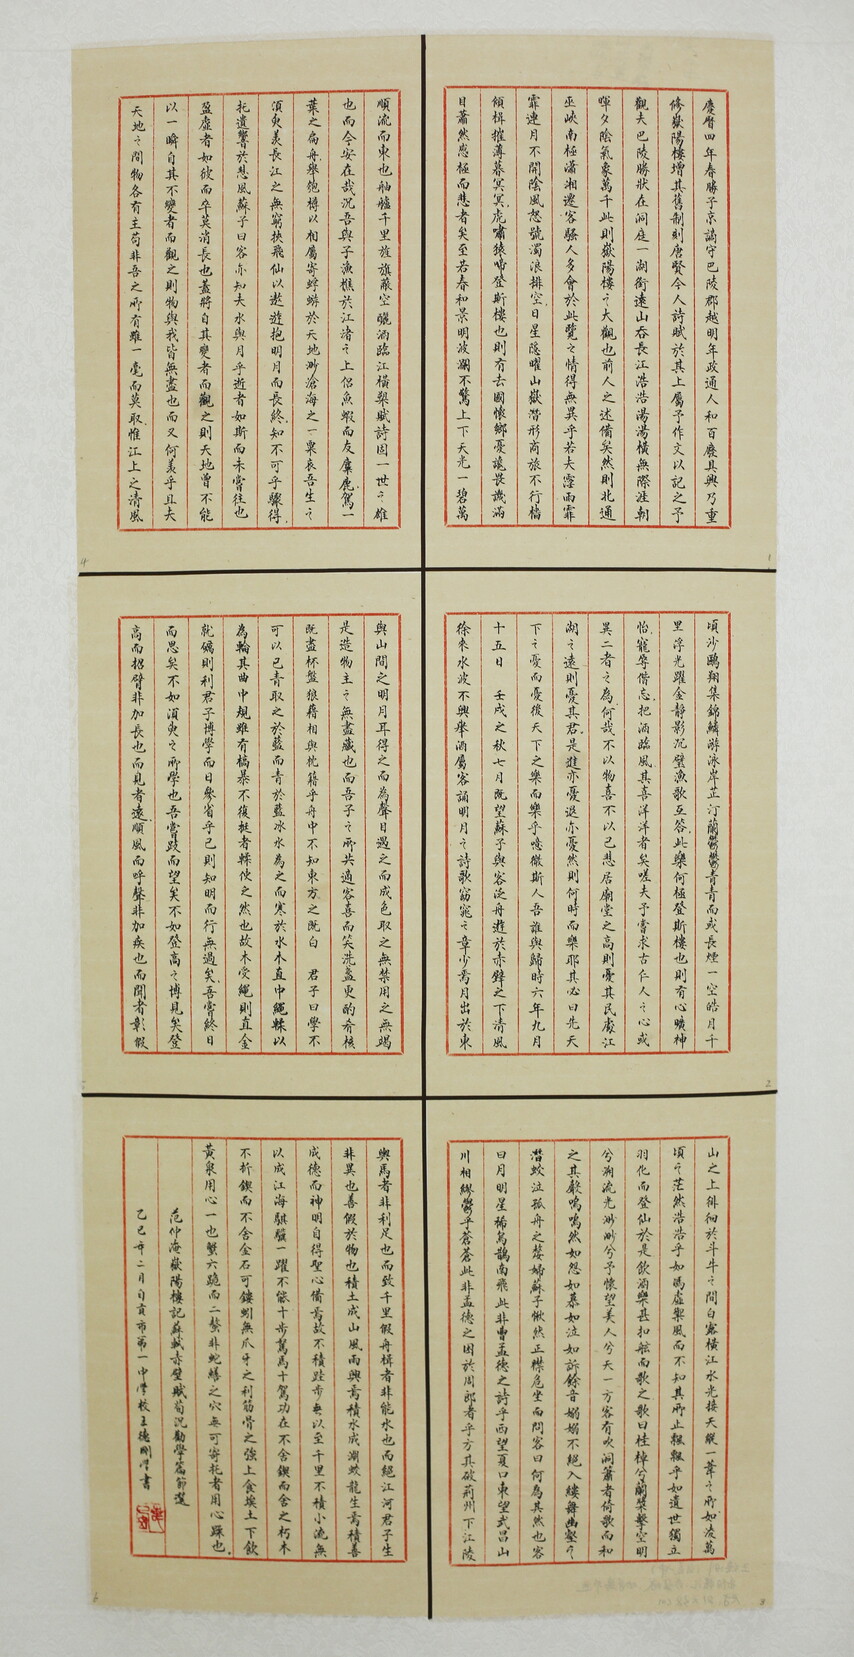 慶曆四年春滕子京謫守巴陵郡越明年政通人和百廢具興乃重
修嶽陽樓增其舊制刻唐賢今人詩賦於其上屬予作文以記之予
觀夫巴陵勝狀在洞庭一湖銜遠山吞長江浩浩湯湯橫無際涯朝
暉夕陰氣象萬千此則嶽陽樓之大觀也前人之述備矣然則北通
巫峽南極瀟湘遷客騷人多會於此覽之情得無異乎若夫霪雨霏
霏連月不開陰風怒號濁浪排空日星隱曜山嶽潛形商旅不行檣
傾楫摧薄暮冥冥虎嘯猿啼登斯樓也則有去國懷鄉憂讒畏譏滿
目蕭然感極而悲者矣至若春和景明波瀾不驚上下天光一碧萬
頃沙鷗翔集錦鱗游泳岸芷汀蘭鬱鬱青青而或長煙一空皓月千
里浮光躍金靜影沉璧漁歌互答此樂何極登斯樓也則有心曠神
怡寵辱偕忘把酒臨風其喜洋洋者矣嗟夫予嘗求古仁人之心或
異二者之為何哉不以物喜不以己悲居廟堂之高則憂其民處江
湖之遠則憂其君是進亦憂退亦憂然則何時而樂耶其必曰先天
下之憂而憂後天下之樂而樂乎噫微斯人吾誰與歸時六年九月
十五日 壬戌之秋七月既望蘇子與客泛舟遊於赤壁之下清風
徐來水波不興舉酒屬客誦明月之詩歌窈窕之章少焉月出於東
山之上徘徊於斗牛之間白露橫江水光接天縱一葦之所如凌萬
頃之茫然浩浩乎如馮虛禦風而不知其所止飄飄乎如遺世獨立
羽化而登仙於是飲酒樂甚扣舷而歌之歌曰桂棹兮蘭槳擊空明
兮溯流光渺渺兮予懷望美人兮天一方客有吹洞簫者倚歌而和
之其聲嗚嗚然如怨如慕如泣如訴餘音嫋嫋不絕入縷舞幽壑之
潛蛟泣孤舟之嫠婦蘇子愀然正襟危坐而問客曰何為其然也客
曰月明星稀烏鵲南飛此非曹孟德之詩乎西望夏口東望武昌山
川相繆鬱乎蒼蒼此非孟德之困於周郎者乎方其破荊州下江陵
順流而東也舳艫千里旌旗蔽空釃酒臨江橫槊賦詩固一世之雄
也而今安在哉況吾與子漁樵於江渚之上侶魚蝦而友麋鹿駕一
葉之扁舟舉匏樽以相屬寄蜉蝣於天地渺滄海之一粟哀吾生之
須臾羨長江之無窮挾飛仙以遨遊抱明月而長終知不可乎驟得
托遺響於悲風蘇子曰客亦知夫水與月乎逝者如斯而未嘗往也
盈虛者如彼而卒莫消長也蓋將自其變者而觀之則天地曾不能
以一瞬自其不變者而觀之則物與我皆無盡也而又何羨乎且夫
天地之間物各有主苟非吾之所有雖一毫而莫取惟江上之清風
與山間之明月耳得之而為聲目遇之而成色取之無禁用之無竭
是造物主之無盡藏也而吾子之所共適客喜而笑洗盞更酌肴核
既盡杯盤狼藉相與枕藉乎舟中不知東方之既白 君子曰學不
可以已青取之於藍而青於藍冰水為之而寒於水木直中繩輮以
為輪其曲中規雖有槁暴不復挺者輮使之然也故木受繩則直金
就礪則利君子博學而日參省乎己則知明而行無過矣吾嘗終日
而思矣不如須臾之所學也吾嘗跂而望矣不如登高之博見矣登
高而招臂非加長也而見者遠順風而呼聲非加疾也而聞者彰假
輿馬者非利足也而致千里假舟楫者非能水也而絕江河君子生
非異也善假於物也積土成山風雨興焉積水成淵蛟龍生焉積善
成德而神明自得聖心備焉故不積跬步無以至千里不積小流無
以成江海騏驥一躍不能十步駑馬十駕功在不舍鍥而舍之朽木
不折鍥而不舍金石可鏤蚓無爪牙之利筋骨之強上食埃土下飲
黃泉用心一也蟹六跪而二螯非蛇蟮之穴無可寄托者用心躁也
范仲淹嶽陽樓記蘇軾赤壁賦荀況勸學篇節選
乙巳年二月自貢市第一中學校王德剛學書